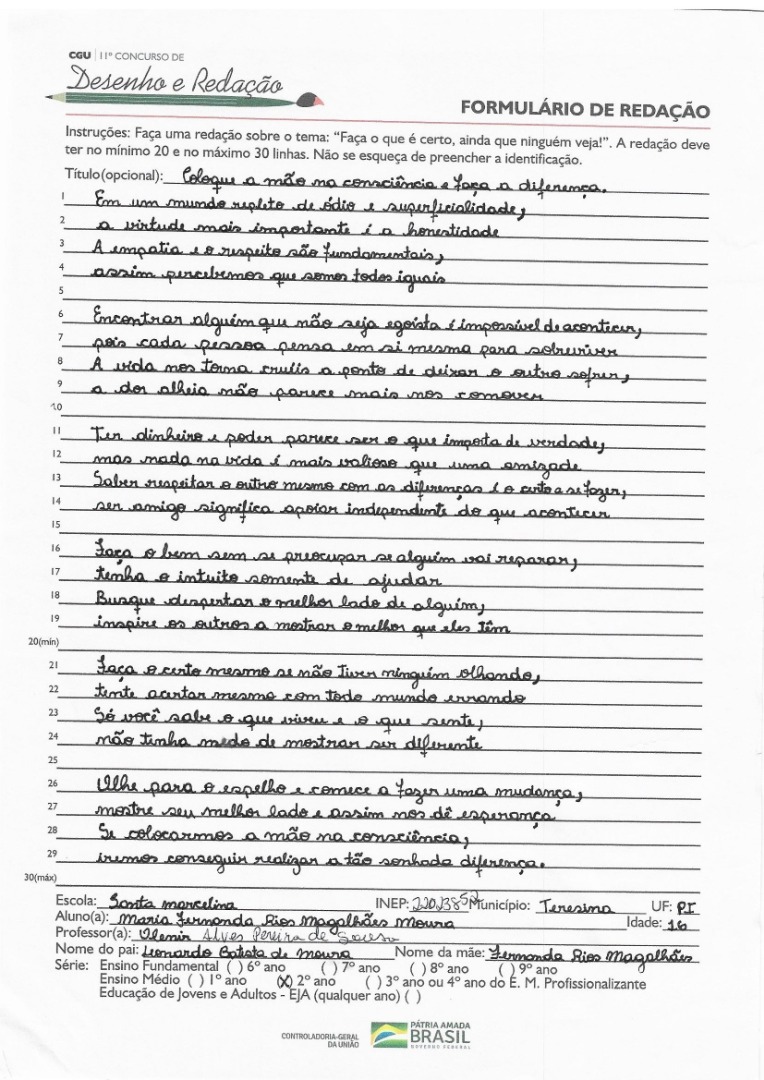 CGU | 11º CONCURSO DE
Desenho e Redação
FORMULÁRIO DE REDAÇÃO
Instruções: Faça uma redação sobre o tema: “Faça o que é certo, ainda que ninguém veja!”. A redação deve
ter no mínimo 20 e no máximo 30 linhas. Não se esqueça de preencher a identificação.
Título(opcional): Coloque a mão na consciência e faça a diferença.
1 Em um mundo repleto de ódio e superficialidade,
2 a virtude mais importante é a honestidade
3 A empatia e o respeito são fundamentais,
4 assim percebemos que somos todos iguais
5
6 Encontrar alguém que não seja egoísta é impossível de acontecer,
7 pois cada pessoa pensa em si mesma para sobreviver
8 A vida nos torna cruéis a ponto de deixar o outro sofrer,
9 a dor alheia não parece mais nos comover
10
11 Ter dinheiro e poder parece ser o que importa de verdade,
12 mas nada na vida é mais valioso que uma amizade
13 Saber respeitar o outro mesmo com as diferenças é o certo a se fazer,
14 ser amigo significa apoiar independente do que acontecer
15
16 Faça o bem sem se preocupar se alguém vai reparar,
17 tenha o intuito somente de ajudar
18 Busque despertar o melhor lado de alguém,
19 inspire os outros a mostrar o melhor que eles têm
20(mín)
21 Faça o certo mesmo se não tiver ninguém olhando,
22 tente acertar mesmo com todo mundo errando
23 Só você sabe o que viveu e o que sente,
24 não tenha medo de mostrar ser diferente
25
26 Olhe para o espelho e comece a fazer uma mudança,
27 mostre seu melhor lado e assim nos dê esperança
28 Se colocarmos a mão na consciência,
29 iremos conseguir realizar a tão sonhada diferença.
30(máx)
Escola: Santa marcelina INEP: Município: Teresina UF: PI
Aluno(a): Maria Fernanda Rios Magalhães Moura Idade: 16
Professor(a): Alves Pereira de Sousa
Nome do pai: Leonardo Batista de moura Nome da mãe: Fernanda Rios Magalhães
Série: Ensino Fundamental ( ) 6º ano ( ) 7º ano ( ) 8º ano ( ) 9º ano
Ensino Médio ( ) 1º ano (X) 2º ano ( ) 3º ano ou 4º ano do E. M. Profissionalizante
Educação de Jovens e Adultos - EJA (qualquer ano) ( )
CONTROLADORIA-GERAL
DA UNIÃO
PÁTRIA AMADA
BRASIL
GOVERNO FEDERAL